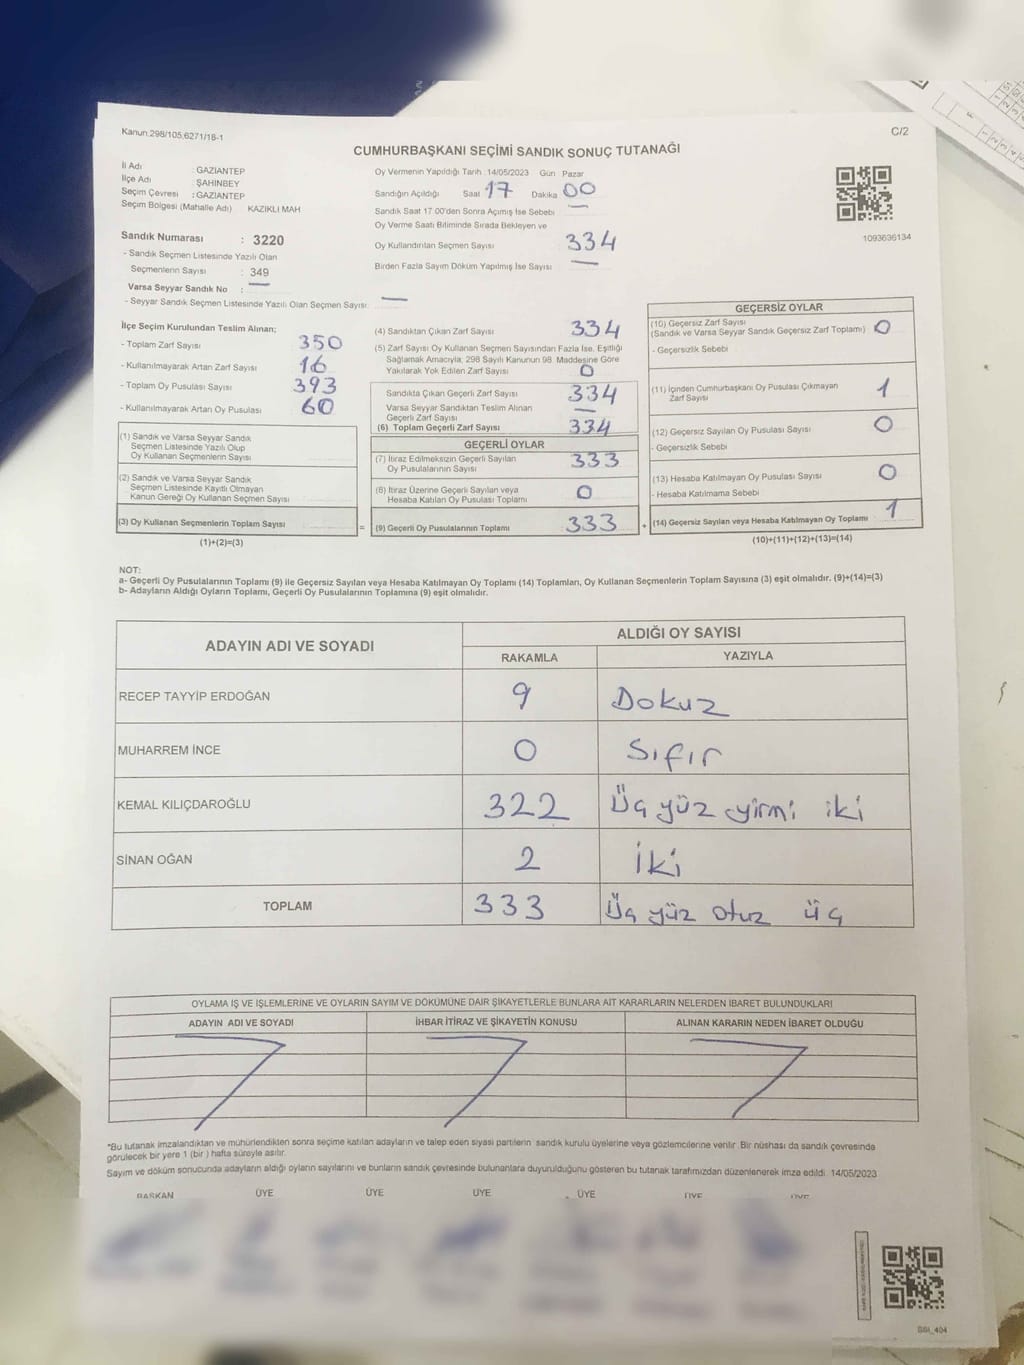 Kanun:298/105,6271/18-1
C/2
CUMHURBAŞKANI SEÇİMİ SANDIK SONUÇ TUTANAĞI
İl Adı : GAZİANTEP
İlçe Adı : ŞAHİNBEY
Seçim Çevresi : GAZİANTEP
Seçim Bölgesi (Mahalle Adı) KAZIKLI MAH
Sandık Numarası : 3220
- Sandık Seçmen Listesinde Yazılı Olan
Seçmenlerin Sayısı : 349
Varsa Seyyar Sandık No : —
- Seyyar Sandık Seçmen Listesinde Yazılı Olan Seçmen Sayısı: —
Oy Vermenin Yapıldığı Tarih : 14/05/2023 Gün Pazar
Sandığın Açıldığı Saat 17 Dakika 00
Sandık Saat 17.00'den Sonra Açımış İse Sebebi —
Oy Verme Saati Bitiminde Sırada Bekleyen ve
Oy Kullandırılan Seçmen Sayısı 334
Birden Fazla Sayım Döküm Yapılmış İse Sayısı —
1093636134
İlçe Seçim Kurulundan Teslim Alınan;
- Toplam Zarf Sayısı 350
- Kullanılmayarak Artan Zarf Sayısı 16
- Toplam Oy Pusulası Sayısı 393
- Kullanılmayarak Artan Oy Pusulası 60
(1) Sandık ve Varsa Seyyar Sandık
Seçmen Listesinde Yazılı Olup
Oy Kullanan Seçmenlerin Sayısı
(2) Sandık ve Varsa Seyyar Sandık
Seçmen Listesinde Kayıtlı Olmayan
Kanun Gereği Oy Kullanan Seçmen Sayısı
(3) Oy Kullanan Seçmenlerin Toplam Sayısı
(1)+(2)=(3)
(4) Sandıktan Çıkan Zarf Sayısı 334
(5) Zarf Sayısı Oy Kullanan Seçmen Sayısından Fazla İse, Eşitliği
Sağlamak Amacıyla; 298 Sayılı Kanunun 98. Maddesine Göre
Yakılarak Yok Edilen Zarf Sayısı 0
Sandıkta Çıkan Geçerli Zarf Sayısı 334
Varsa Seyyar Sandıktan Teslim Alınan
Geçerli Zarf Sayısı —
(6) Toplam Geçerli Zarf Sayısı 334
GEÇERLİ OYLAR
(7) İtiraz Edilmeksizin Geçerli Sayılan
Oy Pusulalarının Sayısı 333
(8) İtiraz Üzerine Geçerli Sayılan veya
Hesaba Katılan Oy Pusulası Toplamı 0
= (9) Geçerli Oy Pusulalarının Toplamı 333
GEÇERSİZ OYLAR
(10) Geçersiz Zarf Sayısı
(Sandık ve Varsa Seyyar Sandık Geçersiz Zarf Toplamı) 0
- Geçersizlik Sebebi
(11) İçinden Cumhurbaşkanı Oy Pusulası Çıkmayan
Zarf Sayısı 1
(12) Geçersiz Sayılan Oy Pusulası Sayısı 0
- Geçersizlik Sebebi
(13) Hesaba Katılmayan Oy Pusulası Sayısı 0
- Hesaba Katılmama Sebebi
+ (14) Geçersiz Sayılan veya Hesaba Katılmayan Oy Toplamı 1
(10)+(11)+(12)+(13)=(14)
NOT:
a- Geçerli Oy Pusulalarının Toplamı (9) ile Geçersiz Sayılan veya Hesaba Katılmayan Oy Toplamı (14) Toplamları, Oy Kullanan Seçmenlerin Toplam Sayısına (3) eşit olmalıdır. (9)+(14)=(3)
b- Adayların Aldığı Oyların Toplamı, Geçerli Oy Pusulalarının Toplamına (9) eşit olmalıdır.
ADAYIN ADI VE SOYADI
ALDIĞI OY SAYISI
RAKAMLA YAZIYLA
RECEP TAYYİP ERDOĞAN 9 Dokuz
MUHARREM İNCE 0 Sıfır
KEMAL KILIÇDAROĞLU 322 Üç yüz yirmi iki
SİNAN OĞAN 2 İki
TOPLAM 333 Üç yüz otuz üç
OYLAMA İŞ VE İŞLEMLERİNE VE OYLARIN SAYIM VE DÖKÜMÜNE DAİR ŞİKAYETLERLE BUNLARA AİT KARARLARIN NELERDEN İBARET BULUNDUKLARI
ADAYIN ADI VE SOYADI İHBAR İTİRAZ VE ŞİKAYETİN KONUSU ALINAN KARARIN NEDEN İBARET OLDUĞU
*Bu tutanak imzalandıktan ve mühürlendikten sonra seçime katılan adayların ve talep eden siyasi partilerin sandık kurulu üyelerine veya gözlemcilerine verilir. Bir nüshası da sandık çevresinde
görülecek bir yere 1 (bir) hafta süreyle asılır.
Sayım ve döküm sonucunda adayların aldığı oyların sayılarını ve bunların sandık çevresinde bulunanlara duyurulduğunu gösteren bu tutanak tarafımızdan düzenlenerek imza edildi. 14/05/2023
BAŞKAN ÜYE ÜYE ÜYE ÜYE ÜYE ÜYE